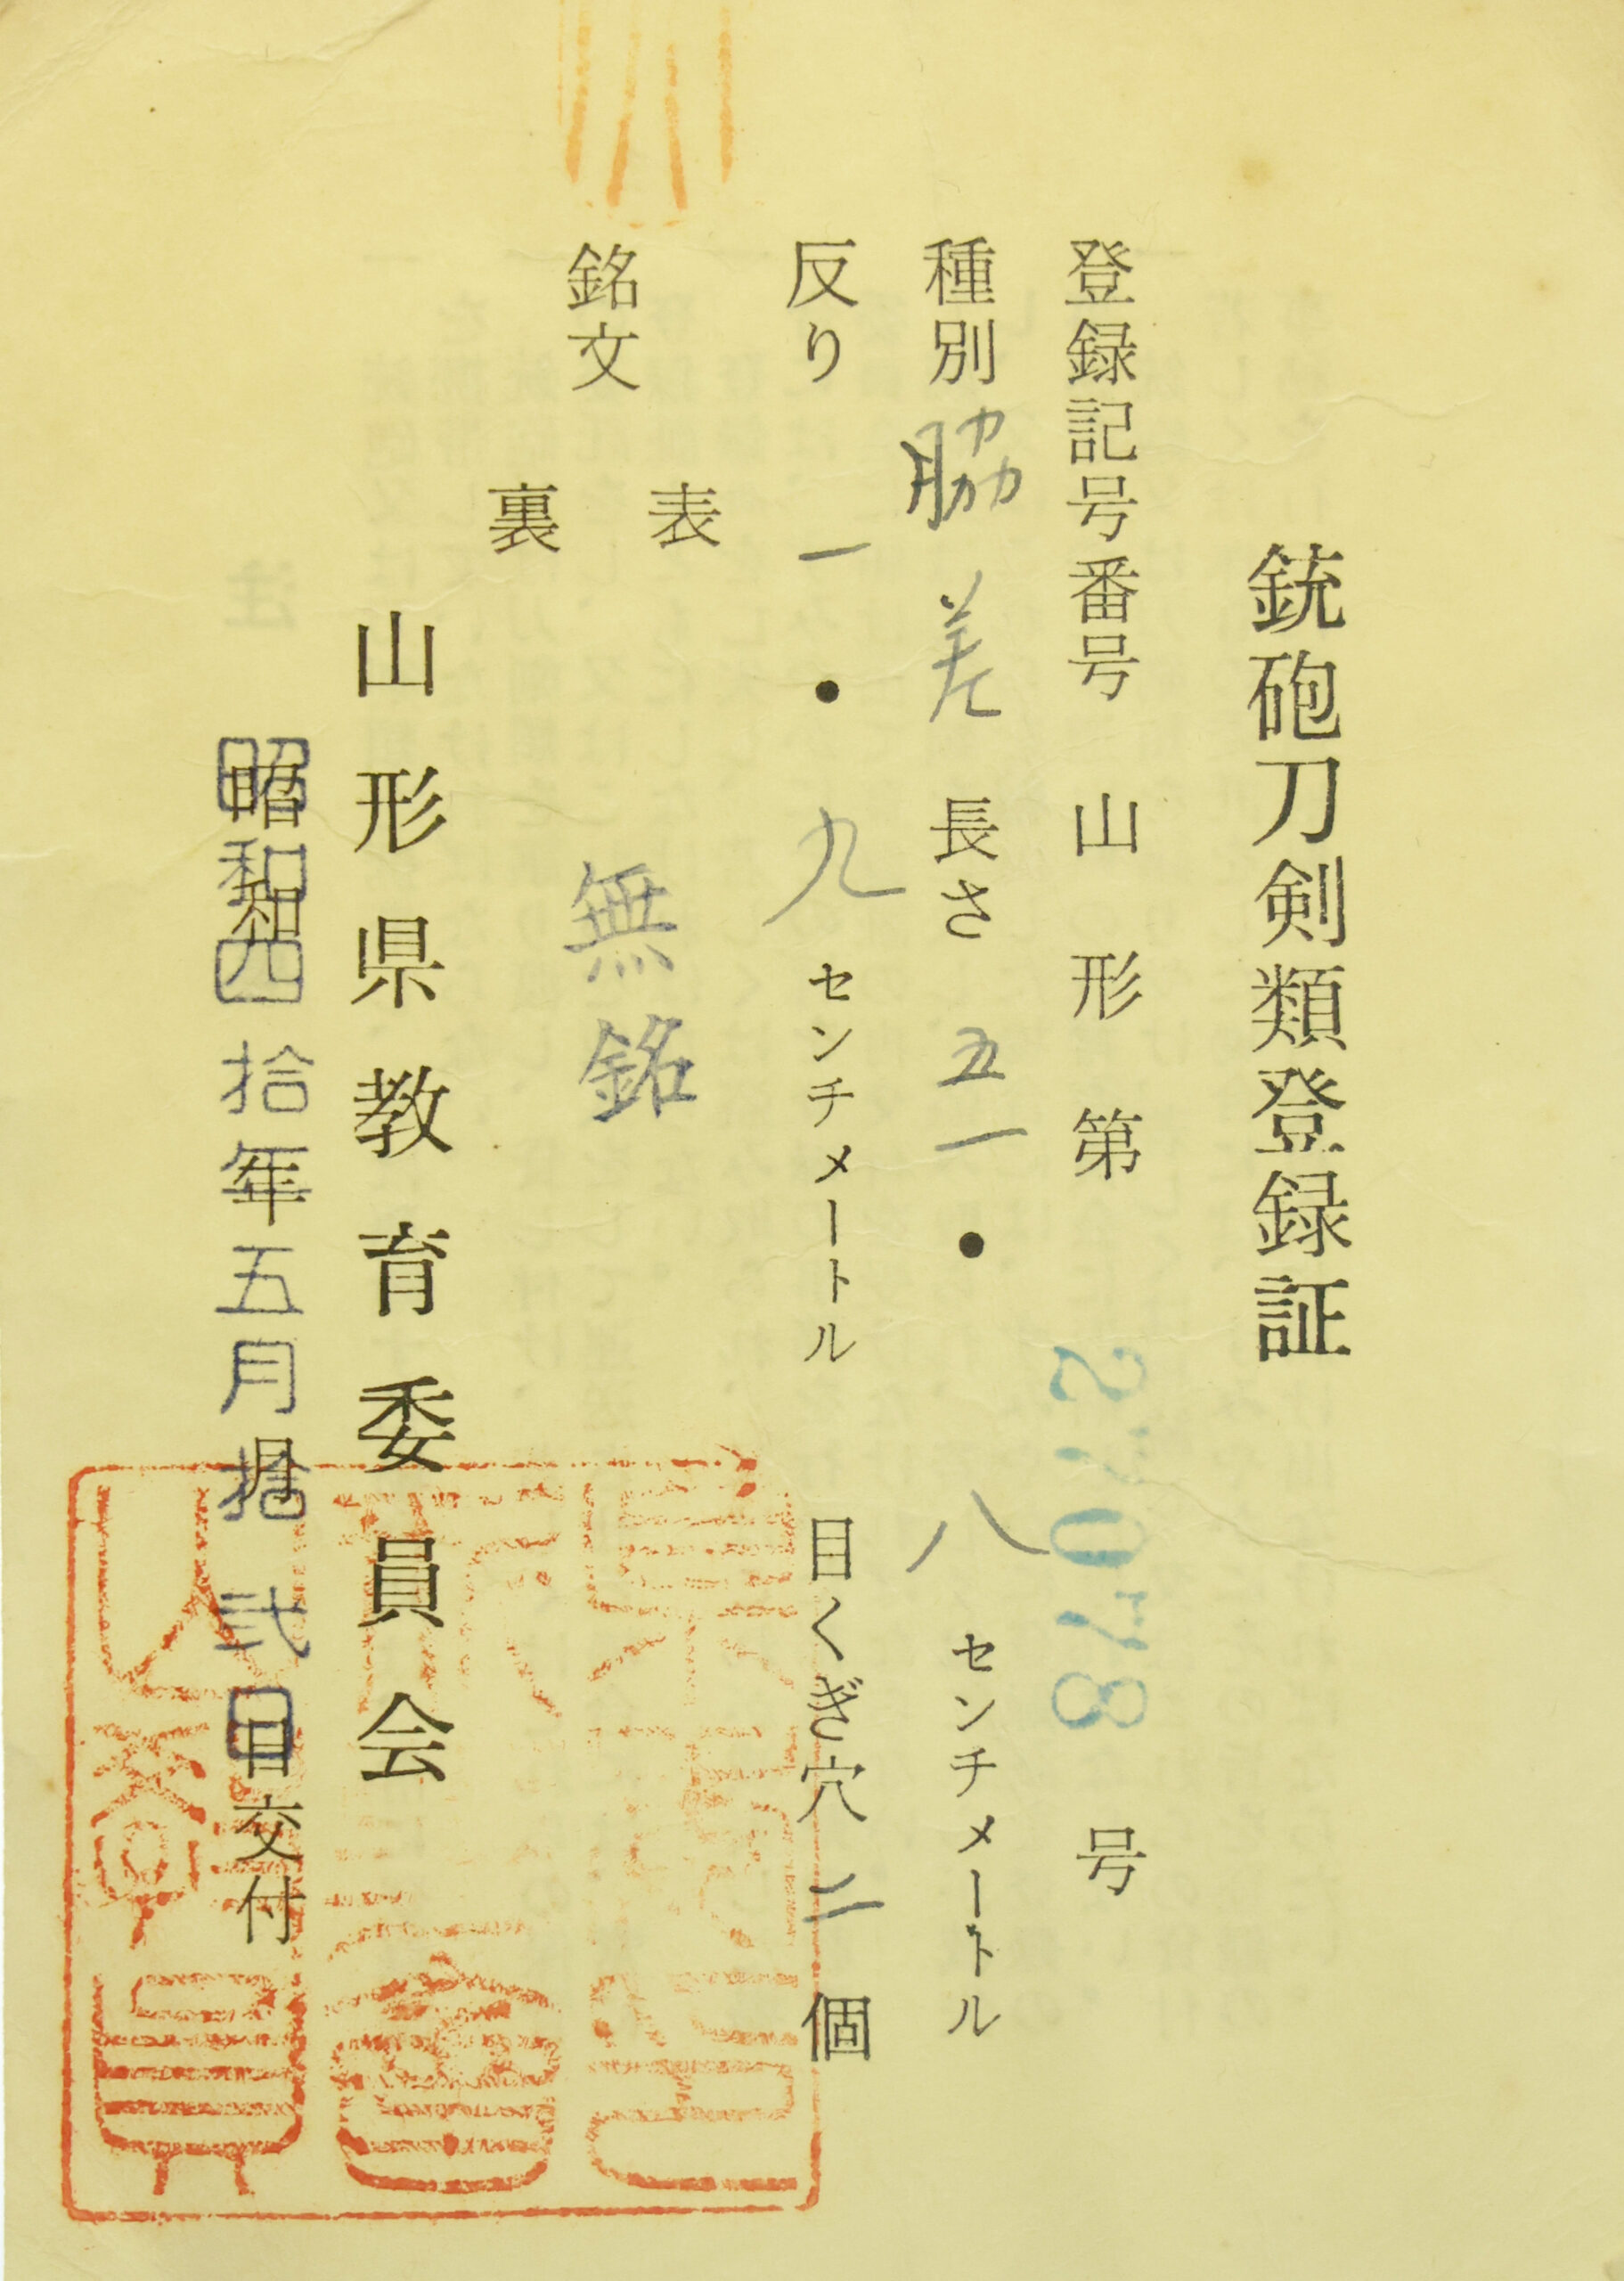 銃砲刀剣類登録証
登録記号番号 山形第 27078 号
種別 脇差 長さ 五一・八 センチメートル
反り 一・九 センチメートル 目くぎ穴 二 個
銘文
表
裏
無銘
山形県教育委員会
昭和四拾年五月拾弐日交付